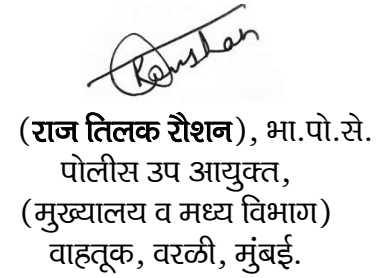 Roushan
(राज तिलक रौशन), भा.पो.से.
पोलीस उप आयुक्त,
(मुख्यालय व मध्य विभाग)
वाहतूक, वरळी, मुंबई.